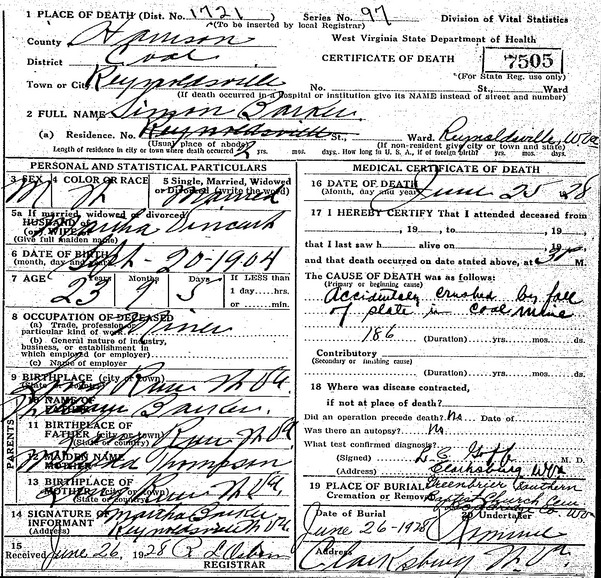 1 PLACE OF DEATH (Dist. No. 1721 ) Series No. 97 Division of Vital Statistics
(To be inserted by local Registrar)
County Harrison West Virginia State Department of Health
District Coal CERTIFICATE OF DEATH 7505
Town or City Reynoldsville No. St., Ward (For State Reg. use only)
(If death occurred in a hospital or institution give its NAME instead of street and number)
2 FULL NAME Simon Barker
(a) Residence. No. Reynoldsville St., Ward. Reynoldsville, WVa
(Usual place of abode) (If non-resident give city or town and state)
Length of residence in city or town where death occurred 2 yrs. mos. days. How long in U. S. A., if of foreign birth? yrs. mos. days.
PERSONAL AND STATISTICAL PARTICULARS
3 SEX M 4 COLOR OR RACE W 5 Single, Married, Widowed or Divorced (write the word) Married
5a If married, widowed or divorced
HUSBAND of
(or) WIFE of Martha Vincent
(Give full maiden name)
6 DATE OF BIRTH Sept - 20 - 1904
(month, day and year)
7 AGE Years 23 Months 9 Days 5 If LESS than
1 day....hrs.
or ......min.
8 OCCUPATION OF DECEASED
(a) Trade, profession or particular kind of work Miner
(b) General nature of industry, business, or establishment in which employed (or employer)
(c) Name of employer
9 BIRTHPLACE (city or town) Run W Va.
(State or country)
10 NAME OF FATHER Barker
11 BIRTHPLACE OF FATHER (city or town) Run W Va
(State or country)
12 MAIDEN NAME MOTHER Martha Thompson
13 BIRTHPLACE OF MOTHER (city or town) Run W Va
(State or country)
PARENTS
14 SIGNATURE OF INFORMANT Martha Barker
(Address) Reynoldsville W Va
15
Received June 26, 1928
REGISTRAR
MEDICAL CERTIFICATE OF DEATH
16 DATE OF DEATH June 25 1928
(Month, day and year)
17 I HEREBY CERTIFY That I attended deceased from
, 19 , to , 19 ,
that I last saw h alive on , 19 ,
and that death occurred on date stated above, at M.
The CAUSE OF DEATH was as follows:
(Primary or beginning cause)
Accidentaly crushed by fall
of slate in coal mine
186
(Duration) yrs. mos. ds.
Contributory
(Secondary or finishing cause)
(Duration) yrs. mos. ds.
18 Where was disease contracted,
if not at place of death?
Did an operation precede death? No Date of
Was there an autopsy? No
What test confirmed diagnosis?
(Signed) L. E. M. D.
(Address) Clarksburg W Va
19 PLACE OF BURIAL Greenbrier Southern
Cremation or Removal Baptist Church Cem
Date of Burial June 26 - 1928
20 Undertaker
Address Clarksburg W. Va.